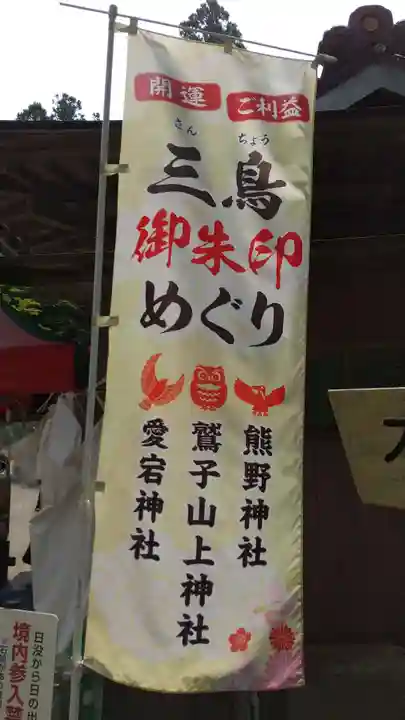 開運 ご利益
さん ちょう
三鳥
御朱印
めぐり
熊野神社
鷲子山上神社
愛宕神社
日没から日の出
境内参入禁